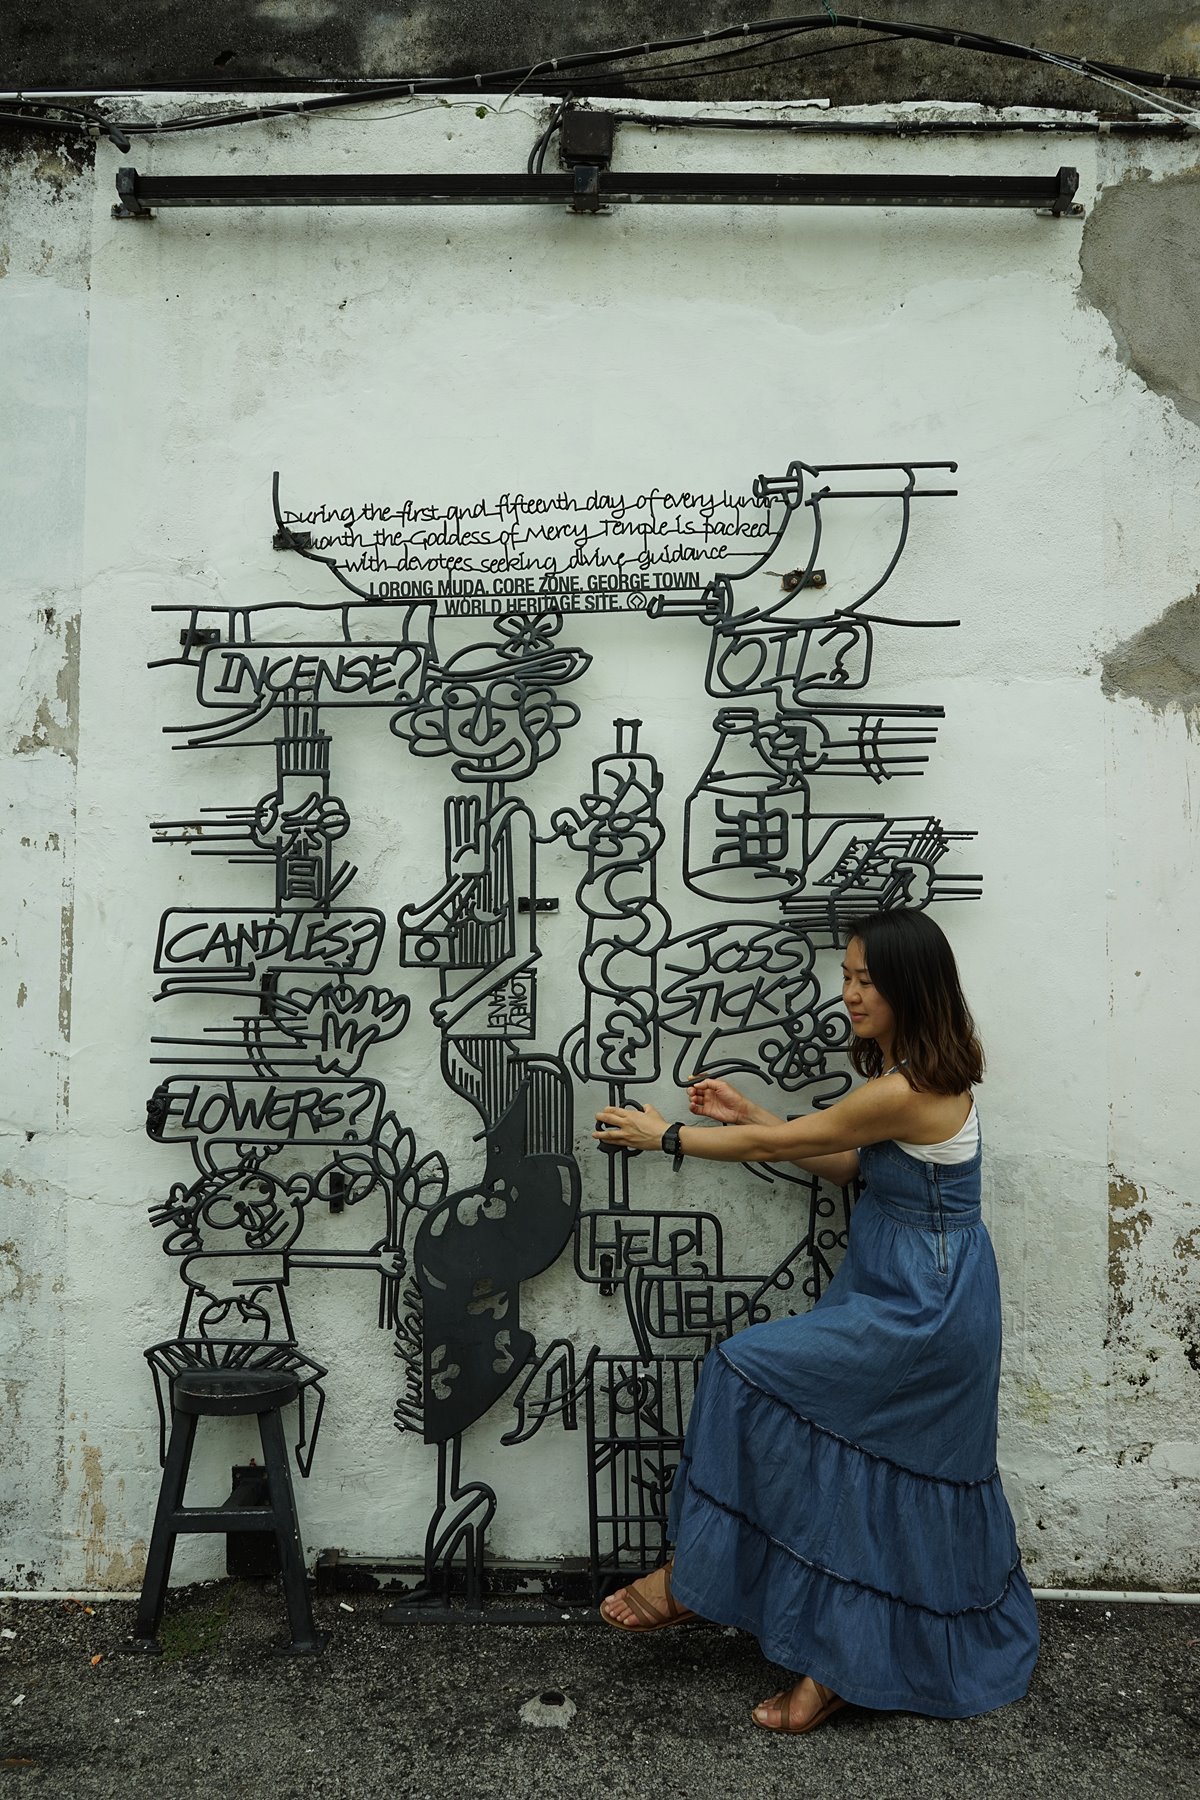 During the first and fifteenth day of every lunar
month the Goddess of Mercy Temple is packed
with devotees seeking divine guidance
LORONG MUDA, CORE ZONE, GEORGE TOWN
WORLD HERITAGE SITE.
INCENSE?
OIL?
油
CANDLES?
JOSS
STICK?
LONELY
FLOWERS?
HELP!
HELP
Munkian